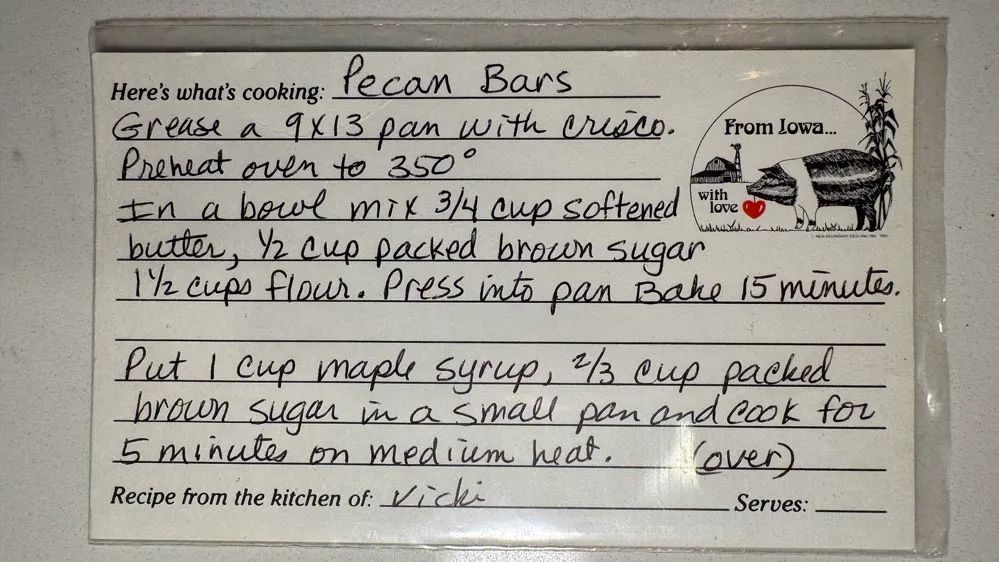 Here's what's cooking: Pecan Bars
Grease a 9x13 pan with crisco.
Preheat oven to 350°
In a bowl mix 3/4 cup softened
butter, 1/2 cup packed brown sugar
1 1/2 cups flour. Press into pan Bake 15 minutes.
Put 1 cup maple syrup, 2/3 cup packed
brown sugar in a small pan and cook for
5 minutes on medium heat. (over)
Recipe from the kitchen of: Vicki Serves:
From Iowa...
with
love